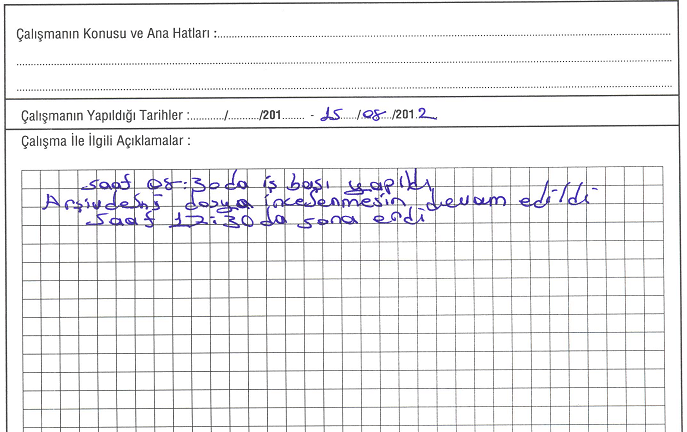 Çalışmanın Konusu ve Ana Hatları :
Çalışmanın Yapıldığı Tarihler :............/............/201........ - 15..../08..../2012
Çalışma İle İlgili Açıklamalar :
saat 08:30da iş başı yapıldı
Arşivdeki dosya incelenmesin devam edildi
saat 17:30da sona erdi